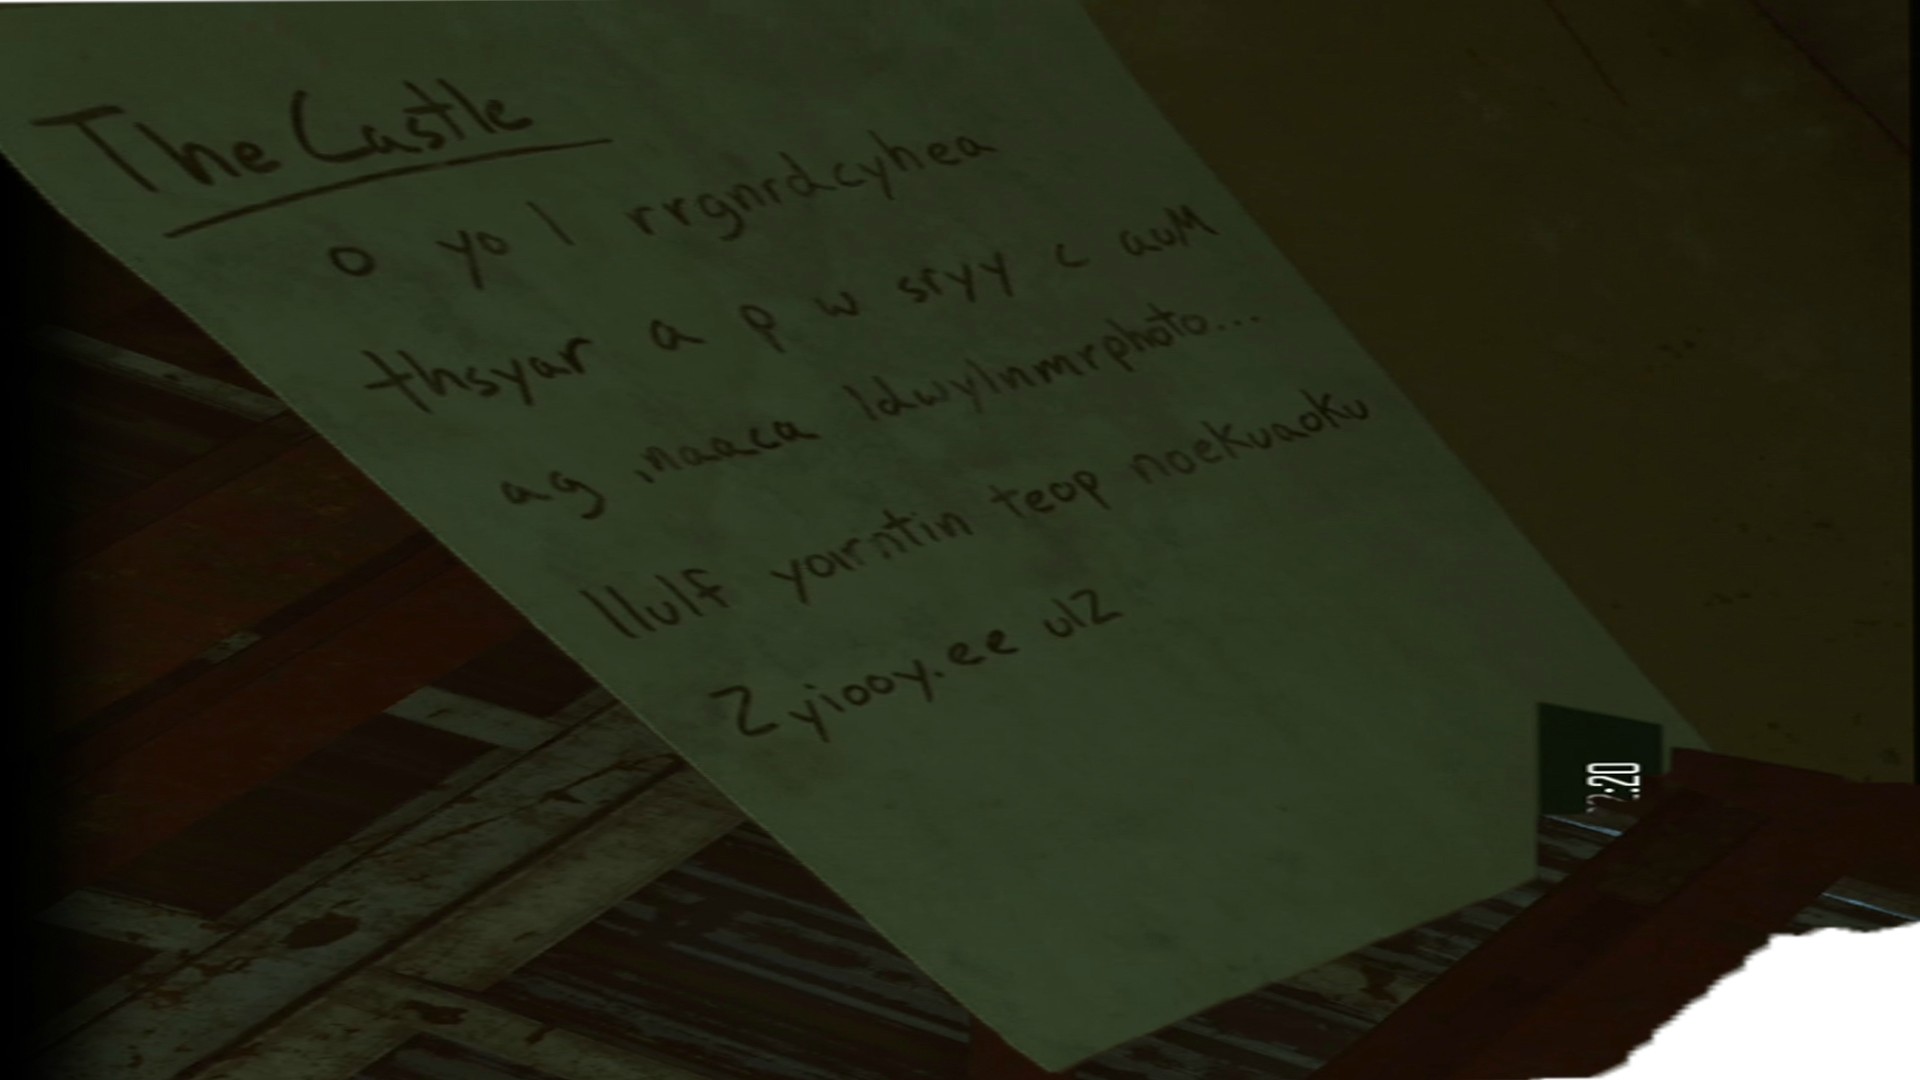 The Castle
o yo l rrgnrdcyhea
thsyar a p w sryy c auM
ag ,naaca ldwylnmrphoto...
llulf yoirntin teop noekuaoku
Zyiooy.ee ulZ
:20